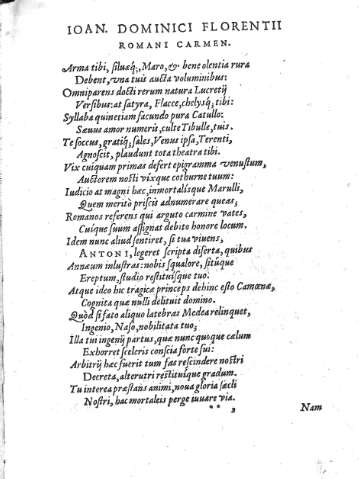 IOAN. DOMINICI FLORENTII
ROMANI CARMEN.
Arma tibi, siluæq́;, Maro, & bene olentia rura
Debent, vna tuis aucta voluminibus:
Omniparens docti rerum natura Lucretij
Versibus: at satyra, Flacce, chelysq́; tibi:
Syllaba quinetiam facundo pura Catullo:
Sæuus amor numeris, culte Tibulle, tuis.
Te soccus, gratiq́; sales, Venus ipsa, Terenti,
Agnoscit, plaudunt tota theatra tibi.
Vix cuiquam primas defert epigramma venustum,
Auctorem nosti vixque cothurne tuum:
Iudicio at magni hæc, inmortalisque Marulli,
Quem meritò priscis adnumerare queas,
Romanos referens qui arguto carmine vates,
Cuique suum assignat debito honore locum.
Idem nunc aliud sentiret, si tua viuens,
ANTONI, legeret scripta diserta, quibus
Annæum inlustras: nobis squalore, sitúque
Ereptum, studio restituisque tuo:
Atque ideo hic tragicæ princeps dehinc esto Camœnæ,
Cognita quæ nulli delituit domino.
Quòd si fato aliquo latebras Medea relinquet,
Ingenio, Naso, nobilitata tuo;
Illa tui ingenij partus, quæ nunc quoque cælum
Exhorret sceleris conscia forte sui:
Arbitrij hæc fuerit tum fas rescindere nostri
Decreta, alterutri restituique gradum.
Tu interea præstans animi, noua gloria sæcli
Nostri, hac mortaleis perge iuuare via.
** 3
Nam